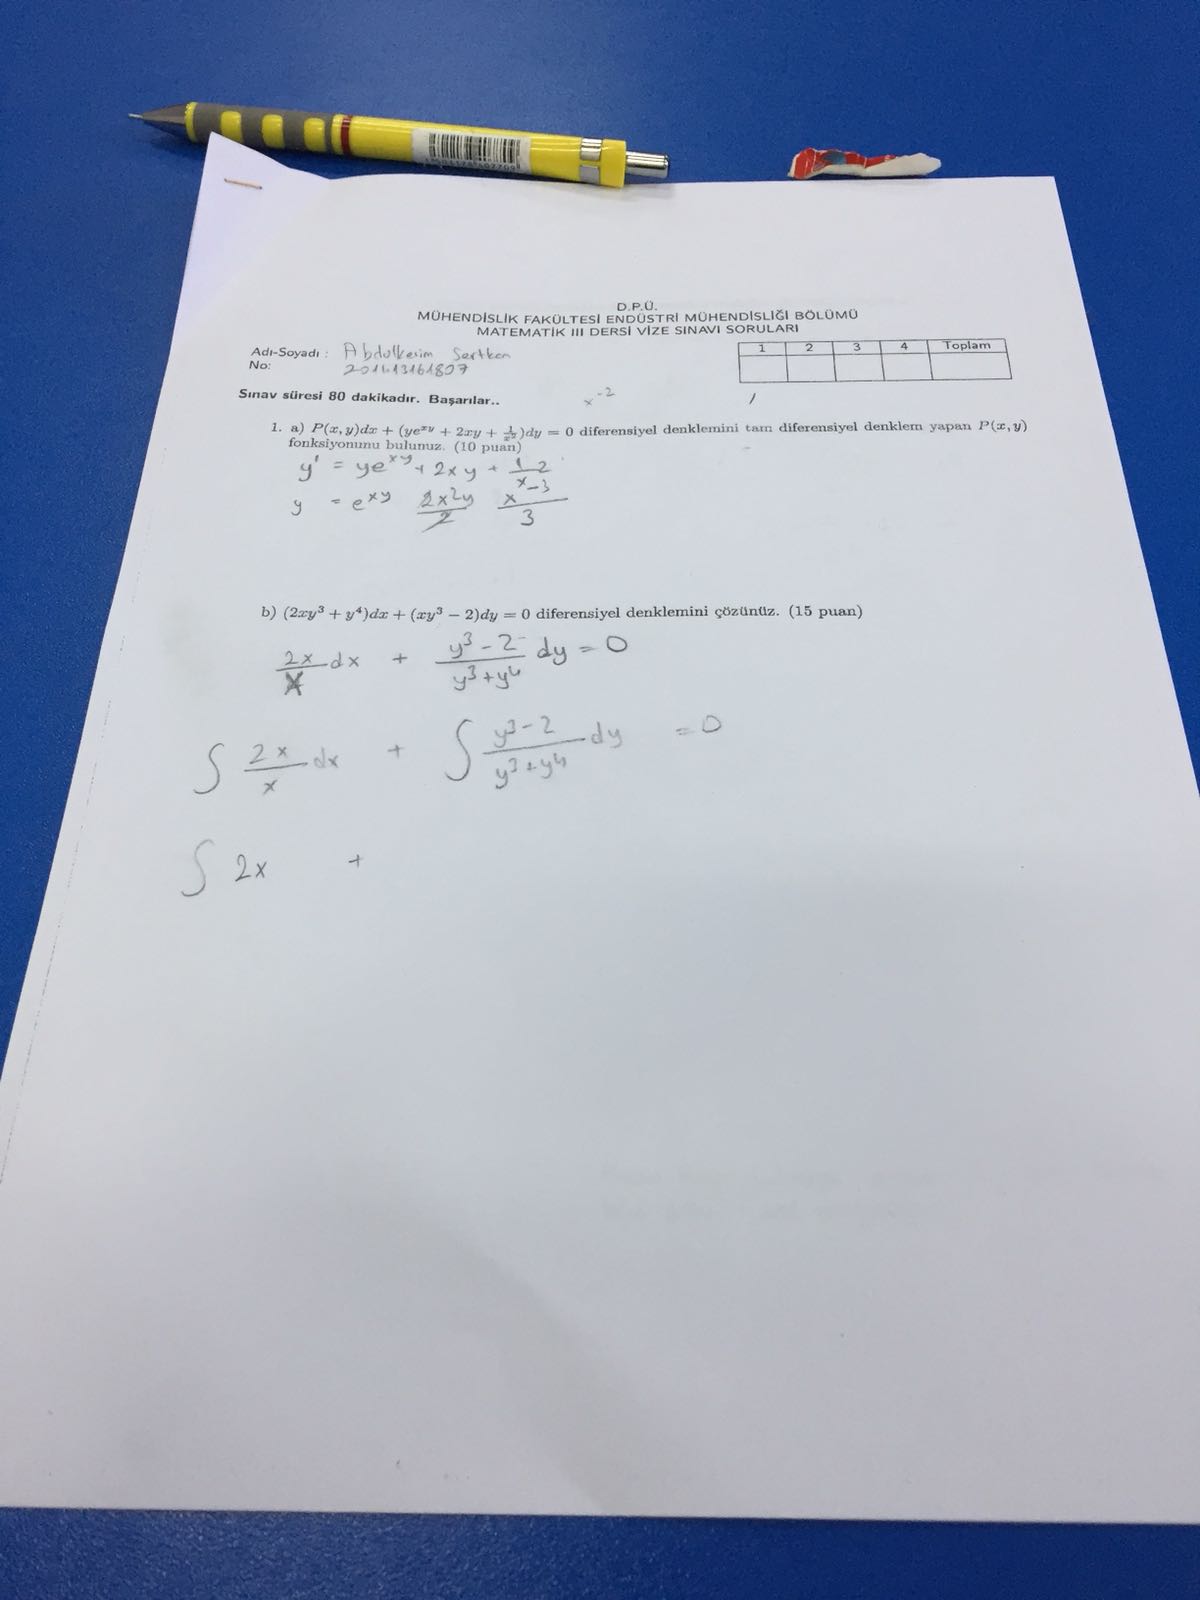 D.P.Ü.
MÜHENDİSLİK FAKÜLTESİ ENDÜSTRİ MÜHENDİSLİĞİ BÖLÜMÜ
MATEMATİK III DERSİ VİZE SINAVI SORULARI
Adı-Soyadı : Abdulkerim Sertkan
No: 201413161807
1 2 3 4 Toplam
Sınav süresi 80 dakikadır. Başarılar..
x^-2
1. a) P(x, y)dx + (ye^xy + 2xy + 1/x^2)dy = 0 diferensiyel denklemini tam diferensiyel denklem yapan P(x, y)
fonksiyonunu bulunuz. (10 puan)
y' = ye^xy + 2xy + 1/x^-2
y = e^xy 2x^2y/2 x^-3/3
b) (2xy^3 + y^4)dx + (xy^3 − 2)dy = 0 diferensiyel denklemini çözünüz. (15 puan)
2x/x dx + y^3-2/y^3+y^4 dy = 0
∫ 2x/x dx + ∫ y^3-2/y^3+y^4 dy = 0
∫ 2x +